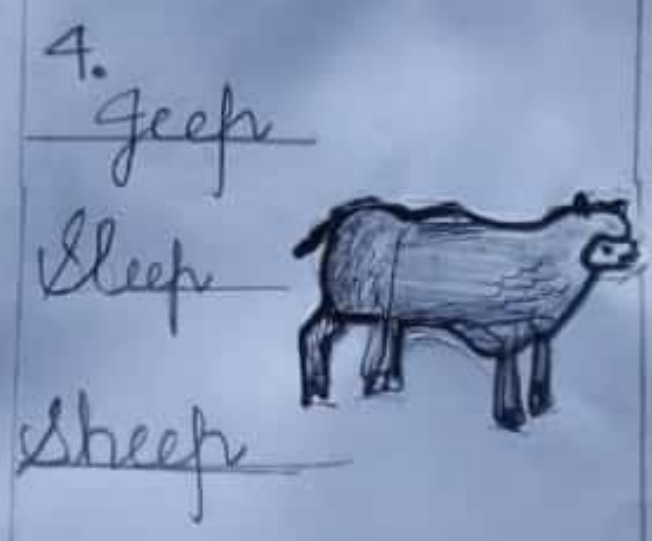 4.
Jeep
Sleep
Sheep